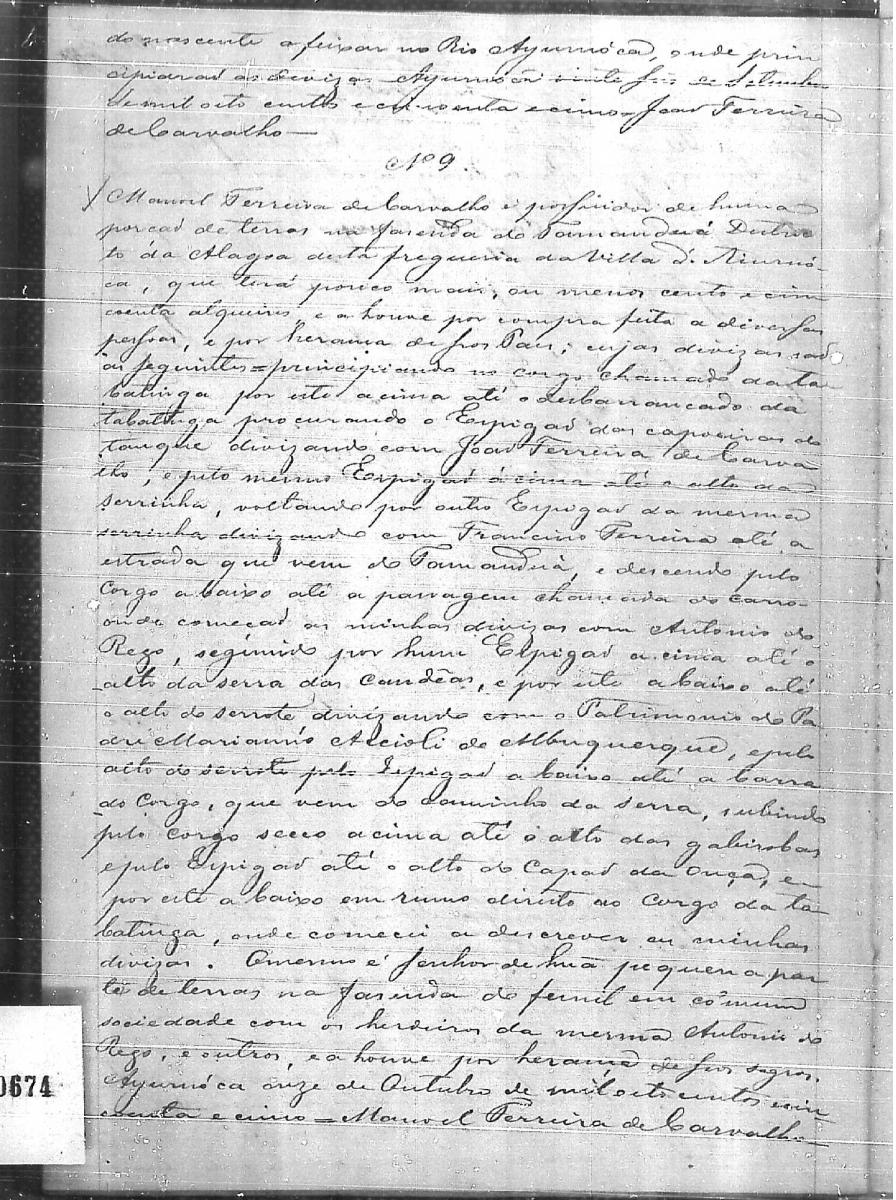 do nascente a feixar no Rio Ayuruóca, onde prin
cipiarad as devizas Ayuruóca vinte seis de Setembro
de mil oito centos e cincoenta e cinco = Joad Ferreira
de Carvalho —
Nº 9
Manoel Ferreira de Carvalho é possuidor de huma
porcad de terras na fazenda do Tamanduá Destric
to da Alagoa desta freguezia da Villa d' Aiuruó-
ca, que terá pouco mais, ou menos cento e cin
coenta alqueires, e a houve por compra feita a diversas
pessoas, e por herança de seos Pais; cujas divizas sad
as seguintes = principiando no corgo chamado da ta
batinga por este acima até o desbarrancado da
tabatinga procurando o Espigad das capoeiras do
tanque divizando com Joad Ferreira de Carva
lho, e pelo mesmo Espigad á cima até o alto da
serrinha, voltando por outro Espigad da mesma
serrinha divizando com Francisco Ferreira até a
estrada que vem do Tamanduá, e descendo pelo
Corgo abaixo até a passagem chamada do carro
onde começad as minhas divizas com Antonio do
Rego, seguindo por hum Espigad a cima até o
alto da serra das Candêas, e por este abaixo até
o alto do serrote divizando com o Patrimonio do Pa
dre Marianno Accioli de Albuquerque, e pelo
alto do serrote pelo Espigad abaixo até a barra
do Corgo, que vem do caminho da serra, subindo
pelo corgo secco acima até o alto das gabirobas
e pelo Espigad até o alto do Capad da Onça, e
por este abaixo em rumo direito ao Corgo da ta
batinga, onde comecei a descrever as minhas
divizas. Omesmo é senhor de huã pequena par
te de terras na fazenda do femil em cômum
sociedade com os herdeiros da mesma Antonio do
Rego, e outros, e a houve por herança de seos sogros.
Ayuruóca onze de Outubro de mil oito centos e cin
coenta e cinco = Manoel Ferreira de Carvalho —
0674